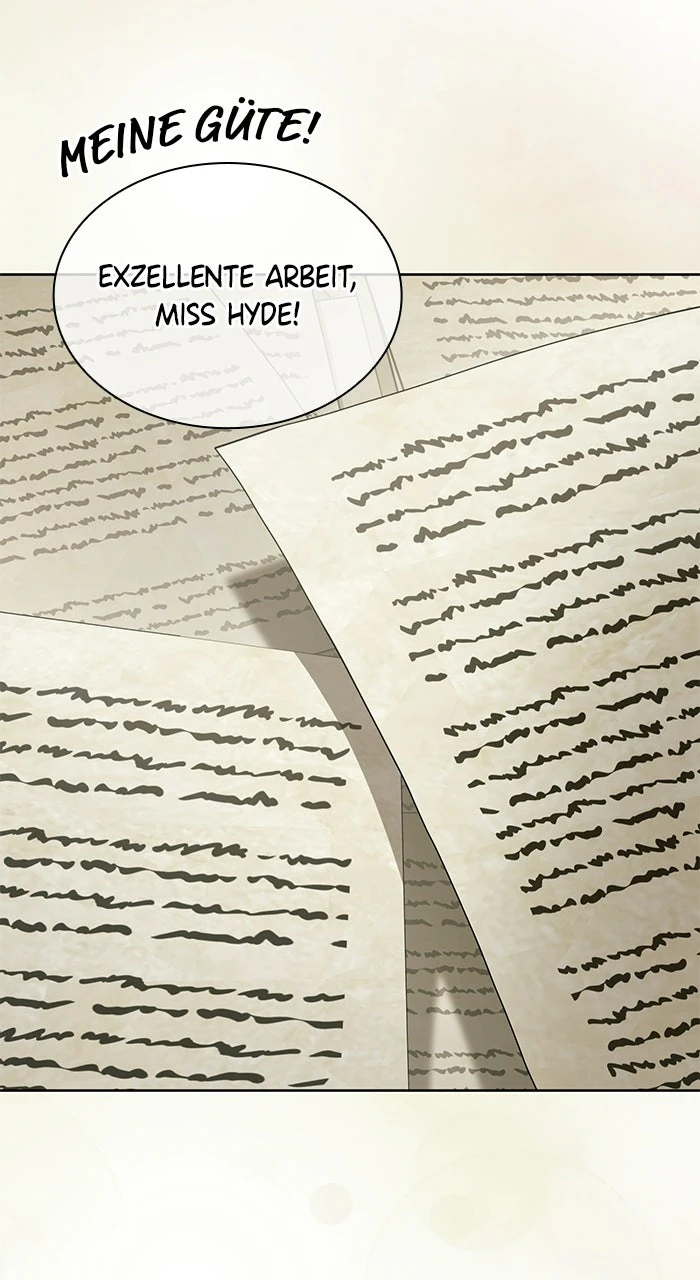 MEINE GÜTE!
EXZELLENTE ARBEIT,
MISS HYDE!